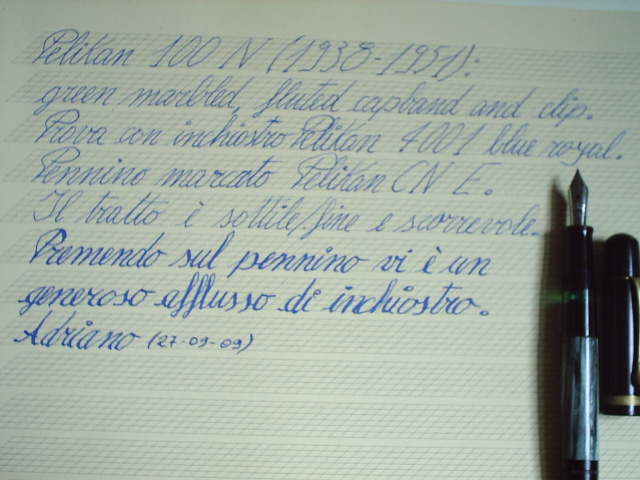 Pelikan 100 N (1938-1951):
green marbled, fluted capband and clip.
Prova con inchiostro Pelikan 4001 blue royal.
Pennino marcato Pelikan CN E.
Il tratto è sottile/fine e scorrevole.
Premendo sul pennino vi è un
generoso afflusso di inchiostro.
Adriano (27-09-09)